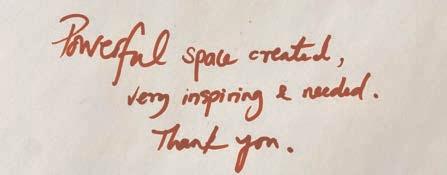 Powerful space created,
very inspiring & needed.
Thank you.